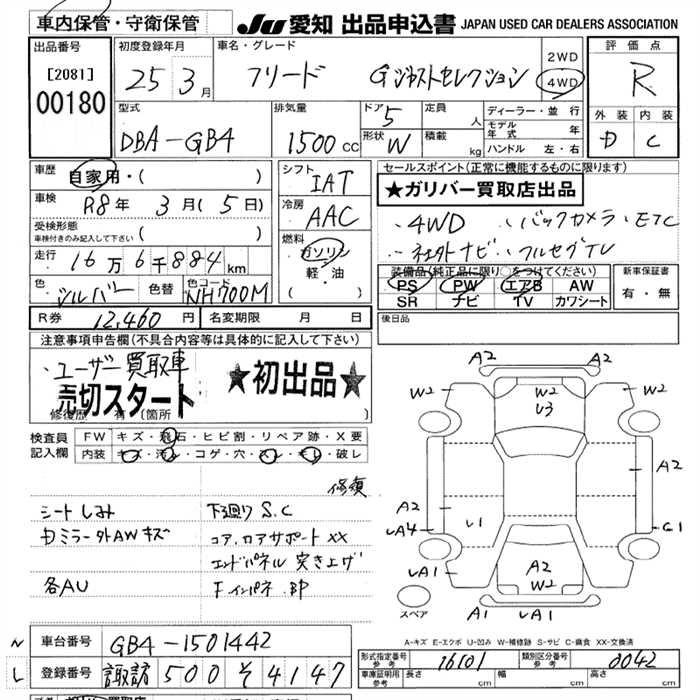 車内保管・守衛保管
JU 愛知 出品申込書 JAPAN USED CAR DEALERS ASSOCIATION
出品番号 [2081] 00180
初度登録年月 25 3月
車名・グレード フリード Gジャストセレクション
2WD
4WD
評価点 R
外装 内装
D C
型式 DBA-GB4
排気量 1500cc
ドア 5
形状 W
定員 人
積載 kg
ディーラー・並行
モデル年式 年
ハンドル 左・右
車歴 自家用・( )
車検 R8年 3月(5日)
受検形態
車検付きのみ記入して下さい ( )
走行 16万6千884km
色 シルバー 色替 色コード NH700M
シフト IAT
冷房 AAC
燃料 ガソリン
軽・油
( )
セールスポイント(正常に機能するものに限ります)
★ガリバー買取店出品
・4WD ・バックカメラ・ETC
・社外ナビ・フルセグTV
装備品(純正品に限り○をつけてください)
PS PW エアB AW
SR ナビ TV カワシート
新車保証書
有・無
R券 12,460円 名変期限 月 日
後日品
注意事項申告欄(不具合内容等は具体的に記入して下さい)
・ユーザー買取車
売切スタート
★初出品★
修復歴 有 (箇所
検査員記入欄
FW キズ・飛石・ヒビ割・リペア跡・X要
内装 キズ・汚れ・コゲ・穴・スレ・キレ・破レ
修復
シートしみ 下廻りS.C
Dミラー外AWキズ コア、コアサポートXX
エンドパネル突き上げ
各AU Fインパネ.BP
A2 A2
W2 W2 W2
U3
A2
A2
U1
UA4 G1
UA1 A2 UA1
W2
A1 UA1
スペア
A-キズ E-エクボ U-凹み W-補修跡 S-サビ C-腐食 XX-交換済
車台番号 GB4-1501442
登録番号 諏訪 500 そ 4147
型式指定番号 参考 16101
類別区分番号 参考 0042
車庫証明用 参考 長さ cm 幅 cm 高さ cm